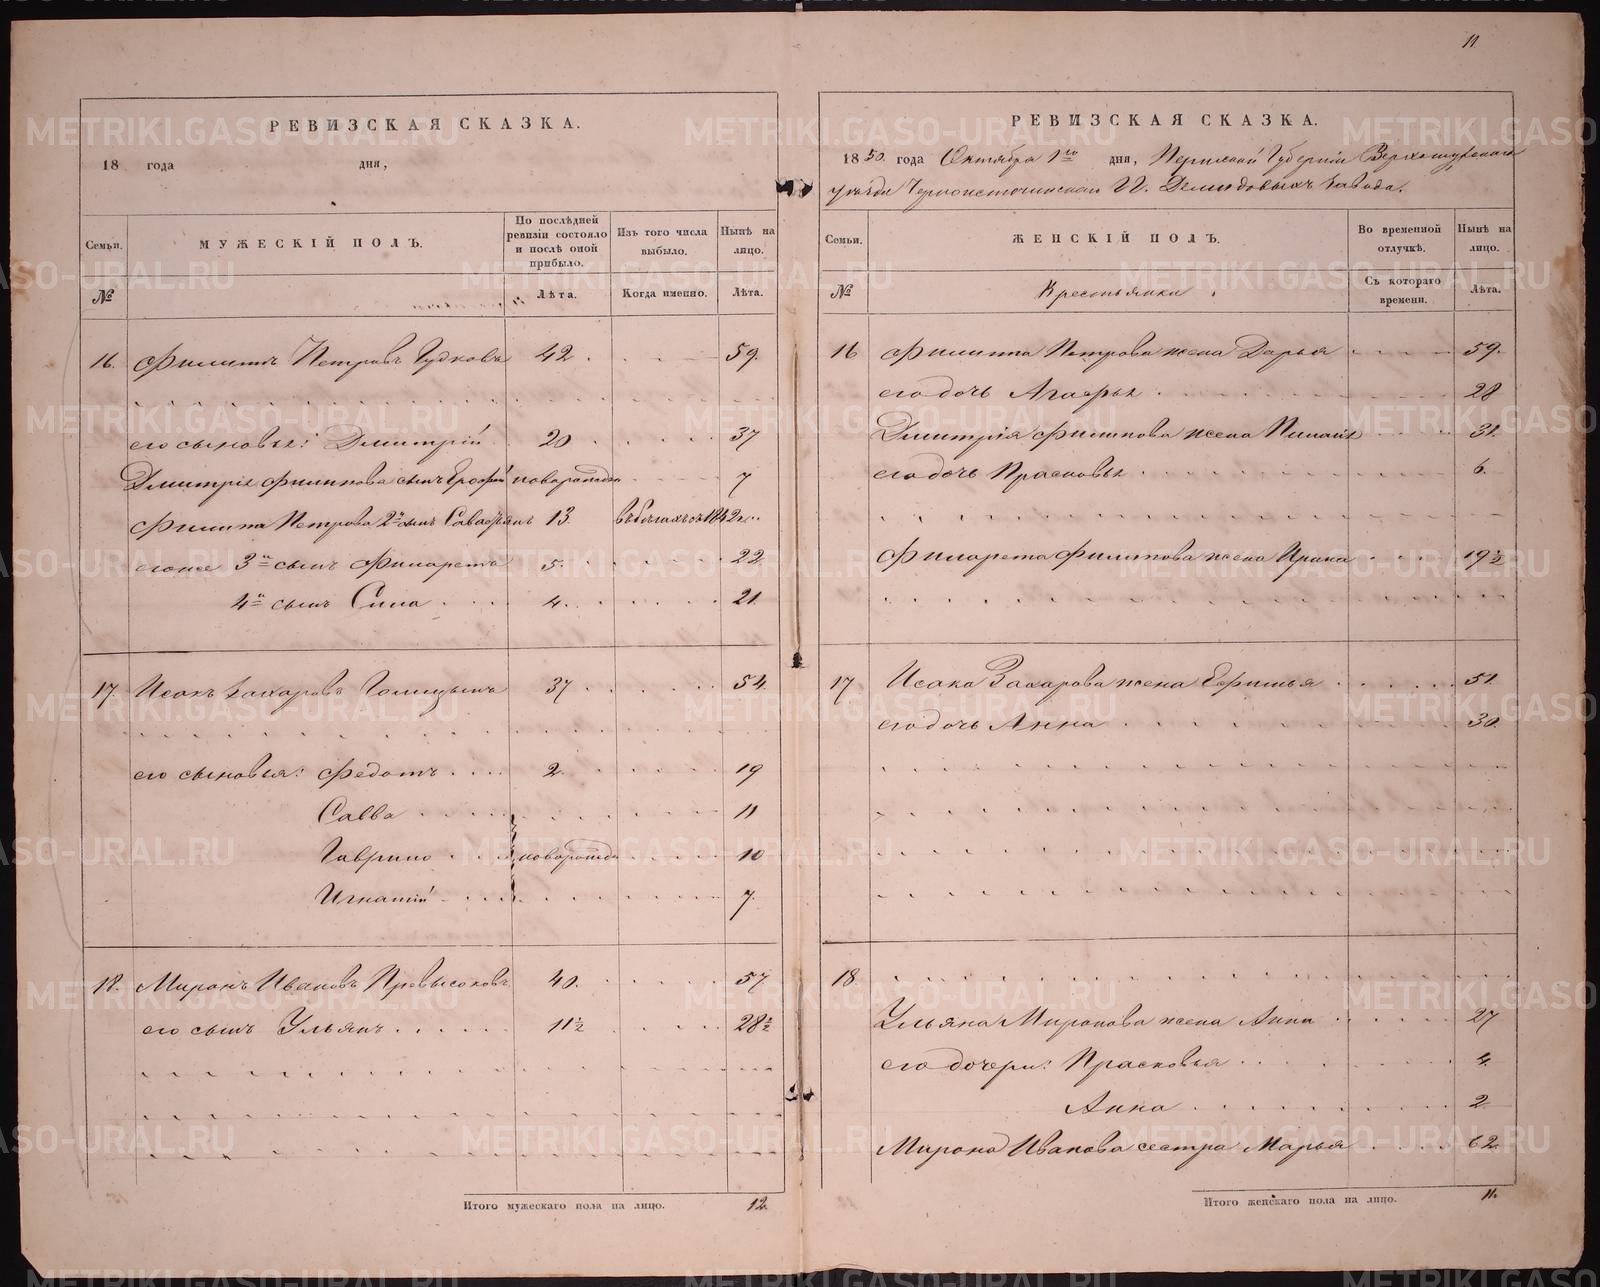 11
РЕВИЗСКАЯ СКАЗКА.
18 года дня,
Семьи. МУЖЕСКІЙ ПОЛЪ. По послѣдней ревизіи состояло и послѣ оной прибыло. Изъ того числа выбыло. Нынѣ на лицо.
№ Лѣта. Когда именно. Лѣта.
16. Филиппъ Петровъ Гудковъ 42 59.
его сыновья: Дмитрій 20 37
Дмитрія Филипова сынъ Ерофей новорожден 7
Филиппа Петрова 2й сынъ Савастьянъ 13. въ бѣгахъ съ 1842 г.
его же 3й сынъ Филаретъ 5. 22
4й сынъ Сила 4. 21.
17. Исакъ Захаровъ Голицынъ 37 54.
его сыновья: Федотъ 2. 19
Савва 11
Гаврило новорожден 10
Игнатій 7.
18. Миронъ Ивановъ Превысоковъ 40. 57
его сынъ Ульянъ 11½ 28½
Итого мужескаго пола на лицо. 12.
РЕВИЗСКАЯ СКАЗКА.
1850 года Октября 1го дня, Пермской Губерніи Верхотурскаго
уѣзда Черноисточинскаго Гг. Демидовыхъ завода.
Семьи. ЖЕНСКІЙ ПОЛЪ. Во временной отлучкѣ. Нынѣ на лицо.
№ Крестьянки. Съ котораго времени. Лѣта.
16 Филиппа Петрова жена Дарья 59.
его дочь Агафья 28
Дмитрія Филипова жена Пелагія 31.
его дочь Прасковья 6.
Филарета Филипова жена Ирина 19½
17 Исака Захарова жена Ефимья 51.
его дочь Анна 30.
18.
Ульяна Миронова жена Анна 27
его дочери: Прасковья 4.
Анна 2
Мирона Иванова сестра Марья 62.
Итого женскаго пола на лицо. 11.
METRIKI.GASO-URAL.RU